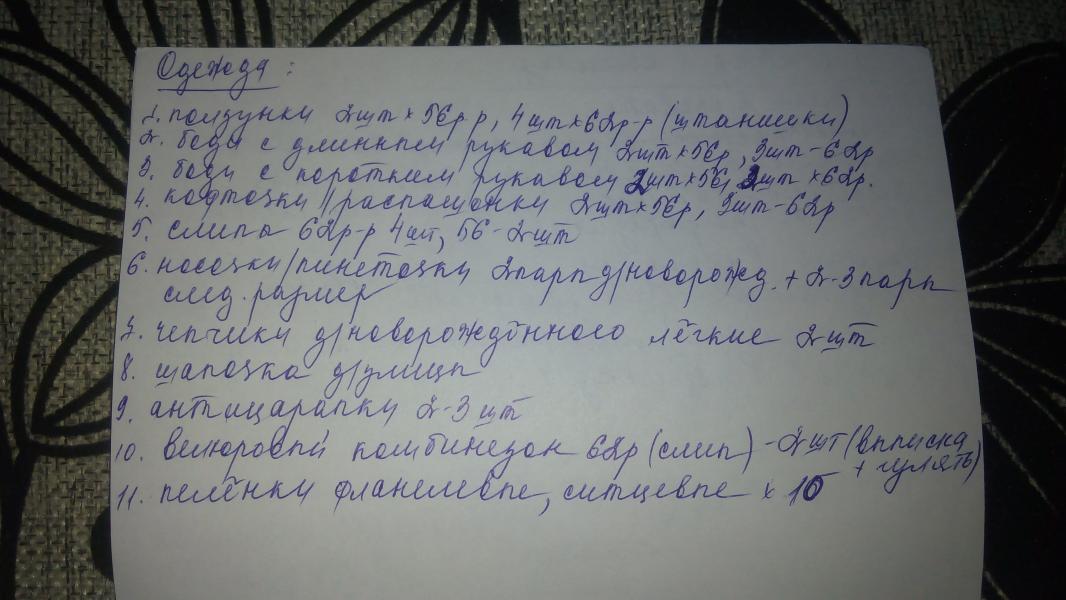 Одежда:
1. ползунки 2шт×56р-р, 4шт×62р-р (штанишки)
2. боди с длинным рукавом 2шт×56р, 3шт-62р
3. боди с коротким рукавом 2шт×56, 2шт×62р.
4. кофточки/распашонки 2шт×56р, 3шт-62р
5. слипы 62р-р 4шт, 56-2шт
6. носочки/пинеточки 2пары д/новорожд. + 2-3пары
след. размер
7. чепчики д/новорождённого лёгкие 2шт
8. шапочка д/улицы
9. антицарапки 2-3шт
10. велюровый комбинезон 62р (слип) - 2шт (выписка
+ гулять)
11. пелёнки фланелевые, ситцевые × 10